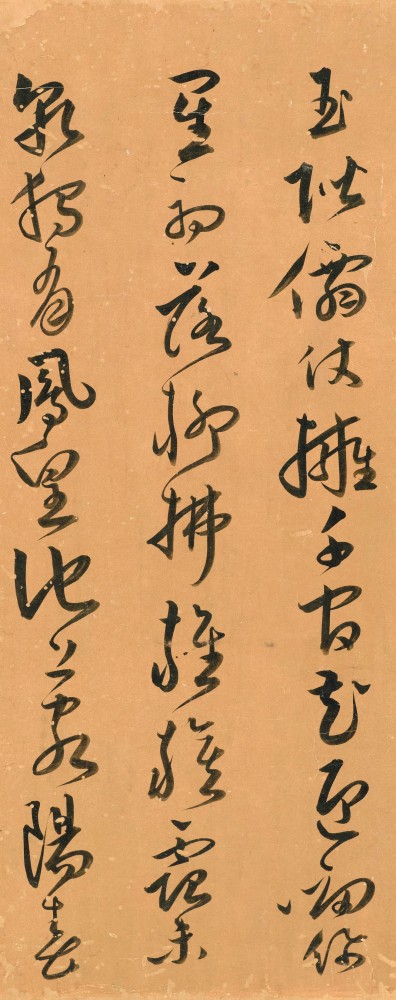 玉階僊仗擁千官花迎劍佩
星初落柳拂旌旗露未
乾獨有鳳皇池上客陽春